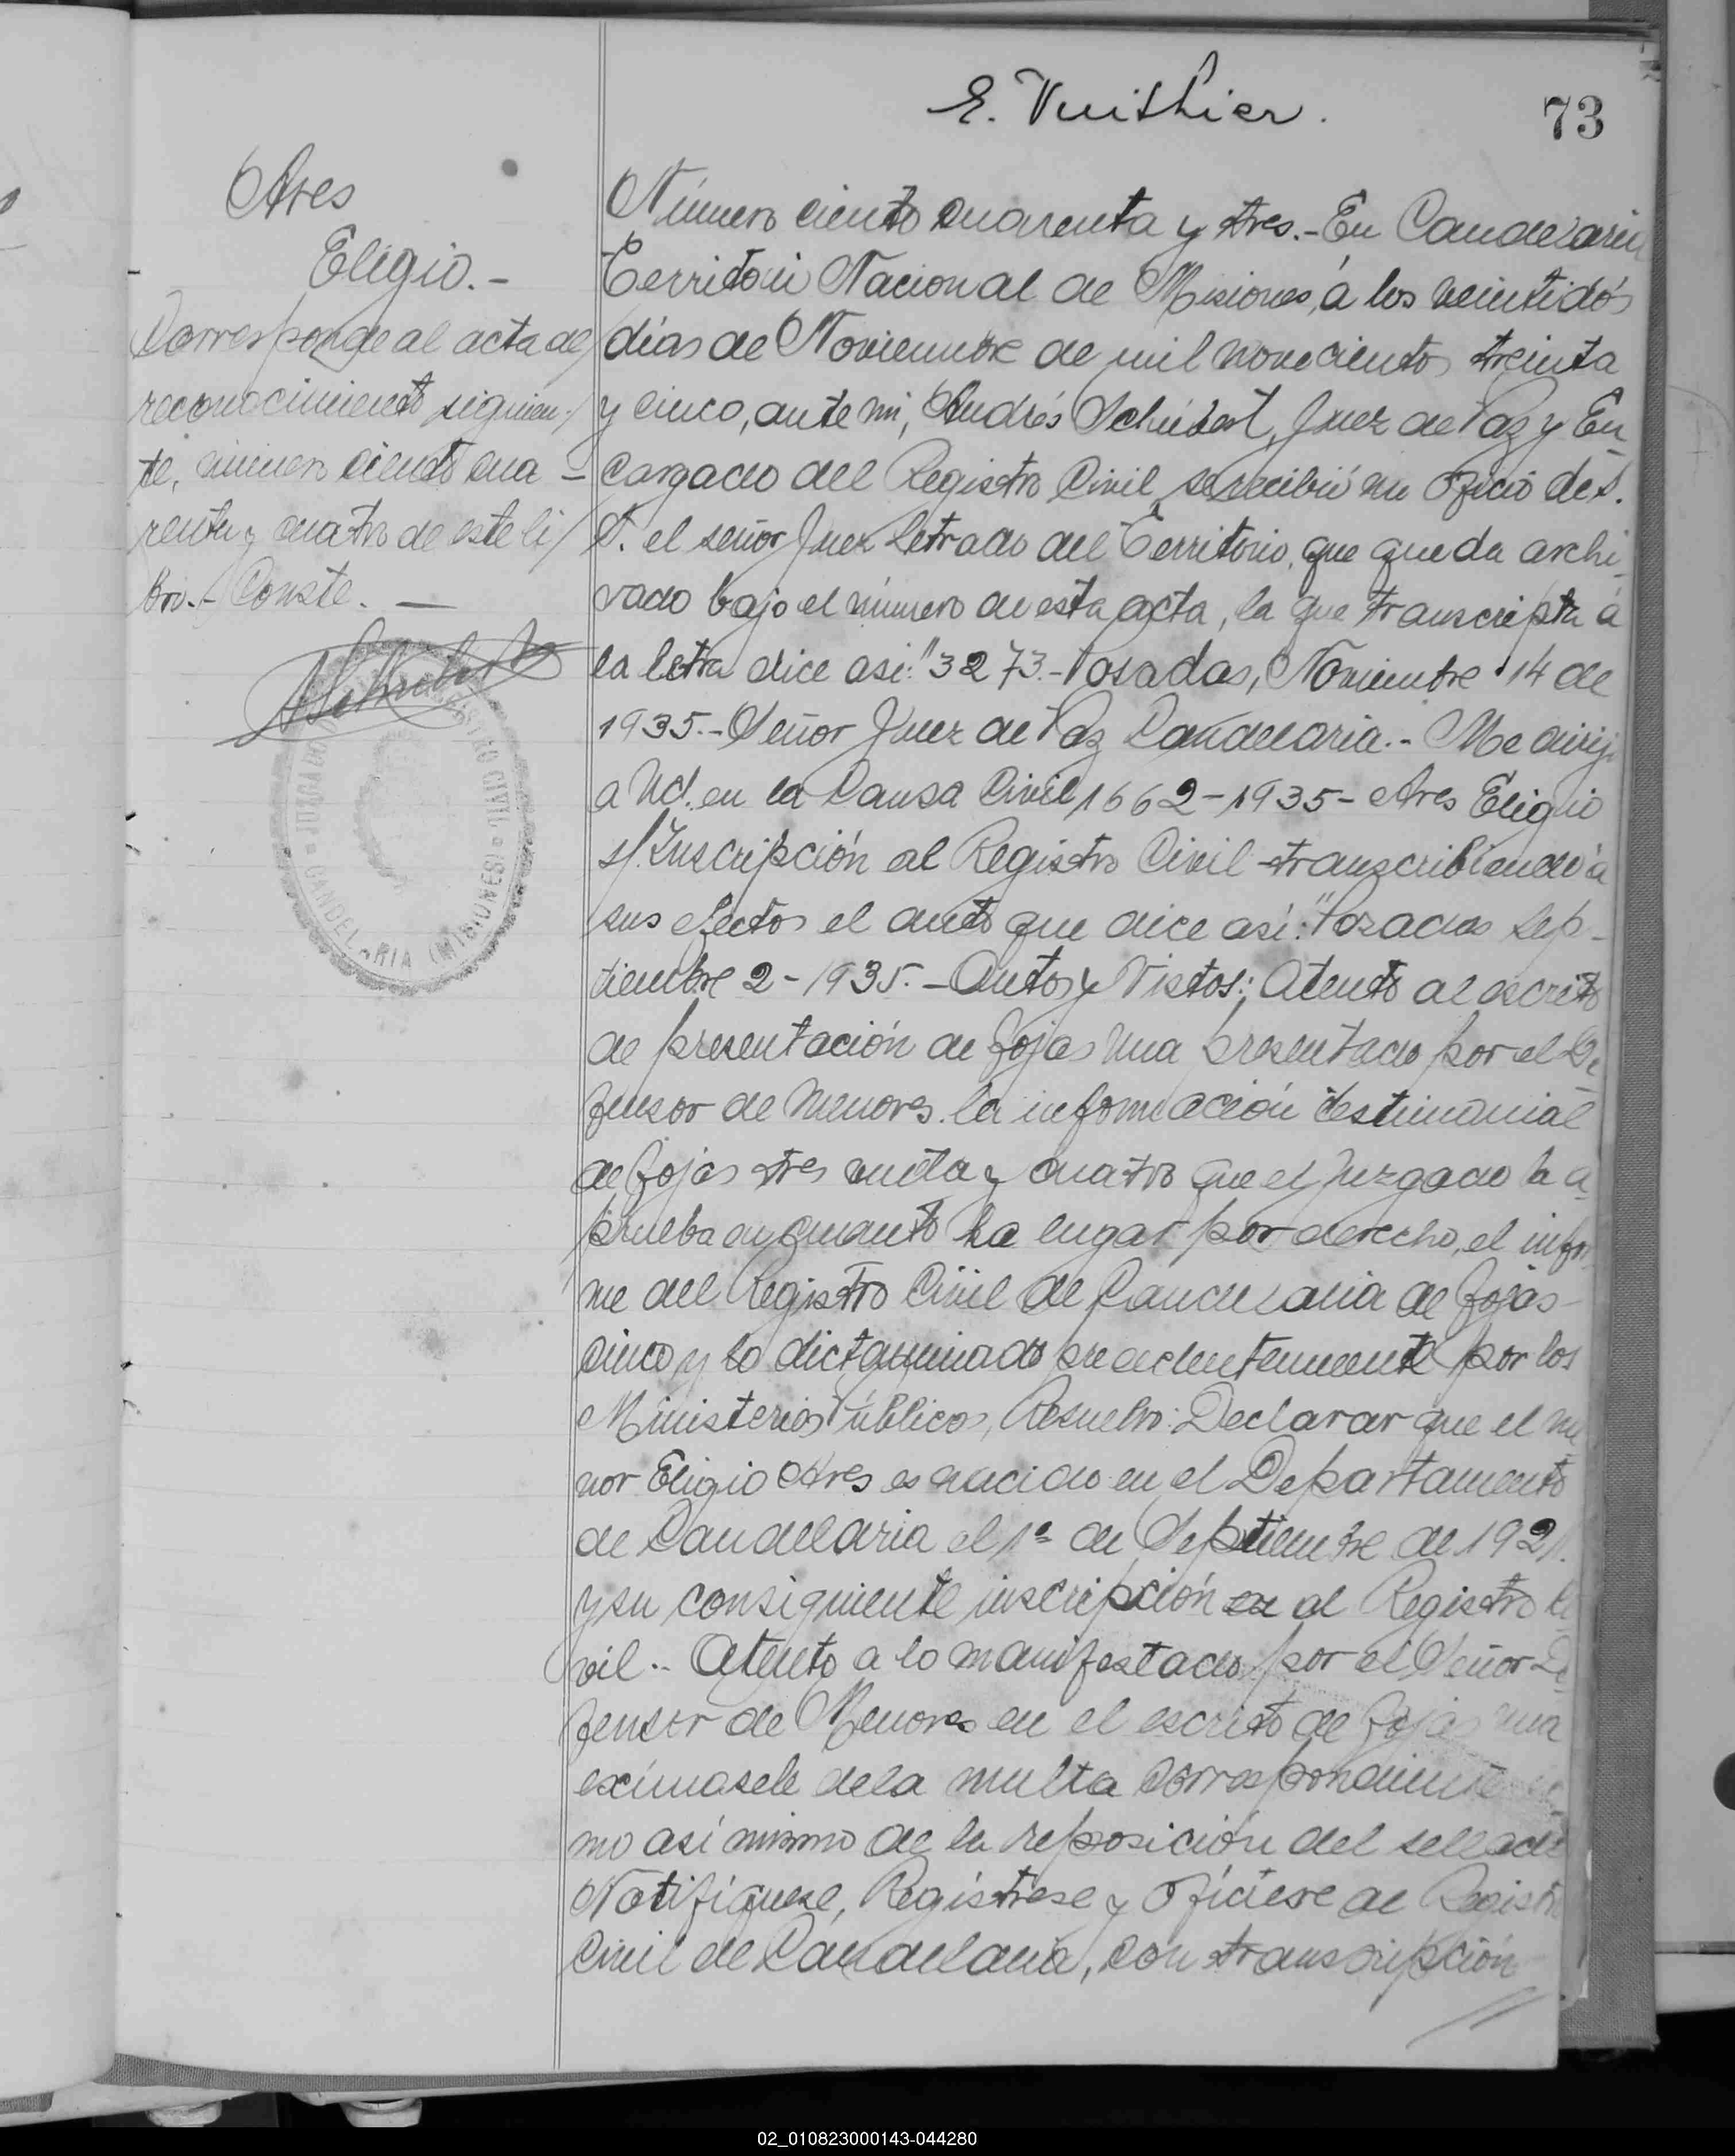 E. Vuithier.
73
Ares
Eligio.-
Corresponde al acta de
reconocimiento siguien-
te, número ciento cua-
renta y cuatro de este li-
bro.- Conste.-
JUZGADO
REGISTRO CIVIL
CANDELARIA (MISIONES)
Número ciento cuarenta y tres.- En Candelaria
Territorio Nacional de Misiones, á los veintidós
días de Noviembre de mil novecientos treinta
y cinco, ante mi, Andrés Schubert, Juez de Paz y En-
cargado del Registro Civil, se recibió un oficio de S.
S. el señor Juez Letrado del Territorio, que queda archi-
vado bajo el número de esta acta, la que transcripta á
la letra dice asi: "3273.- Posadas, Noviembre 14 de
1935.- Señor Juez de Paz Candelaria.- Me dirijo
a Ud. en la Causa Civil 1662-1935- Ares Eligio
s/. Inscripción al Registro Civil - transcribiendo á
sus efectos el auto que dice asi: "Posadas Sep-
tiembre 2-1935.- Autos y Vistos: Atento al escrito
de presentación de fojas una presentado por el De-
fensor de Menores, la información testimonial
de fojas tres vuelta y cuatro que el Juzgado la a-
prueba en cuanto ha lugar por derecho, el infor-
me del Registro Civil de Candelaria de fojas
cinco y lo dictaminado precedentemente por los
Ministerios Públicos, Resuelvo: Declarar que el me-
nor Eligio Ares es nacido en el Departamento
de Candelaria el 1º de Septiembre de 1921.
y su consiguiente inscripción en el Registro Ci-
vil.- Atento a lo manifestado por el Señor De-
fensor de Menores en el escrito de fojas una
exímasele de la multa correspondiente co-
mo asi mismo de la reposición del sellado
Notifíquese, Regístrese y Ofíciese al Registro
Civil de Candelaria, con transcripción
02_010823000143-044280